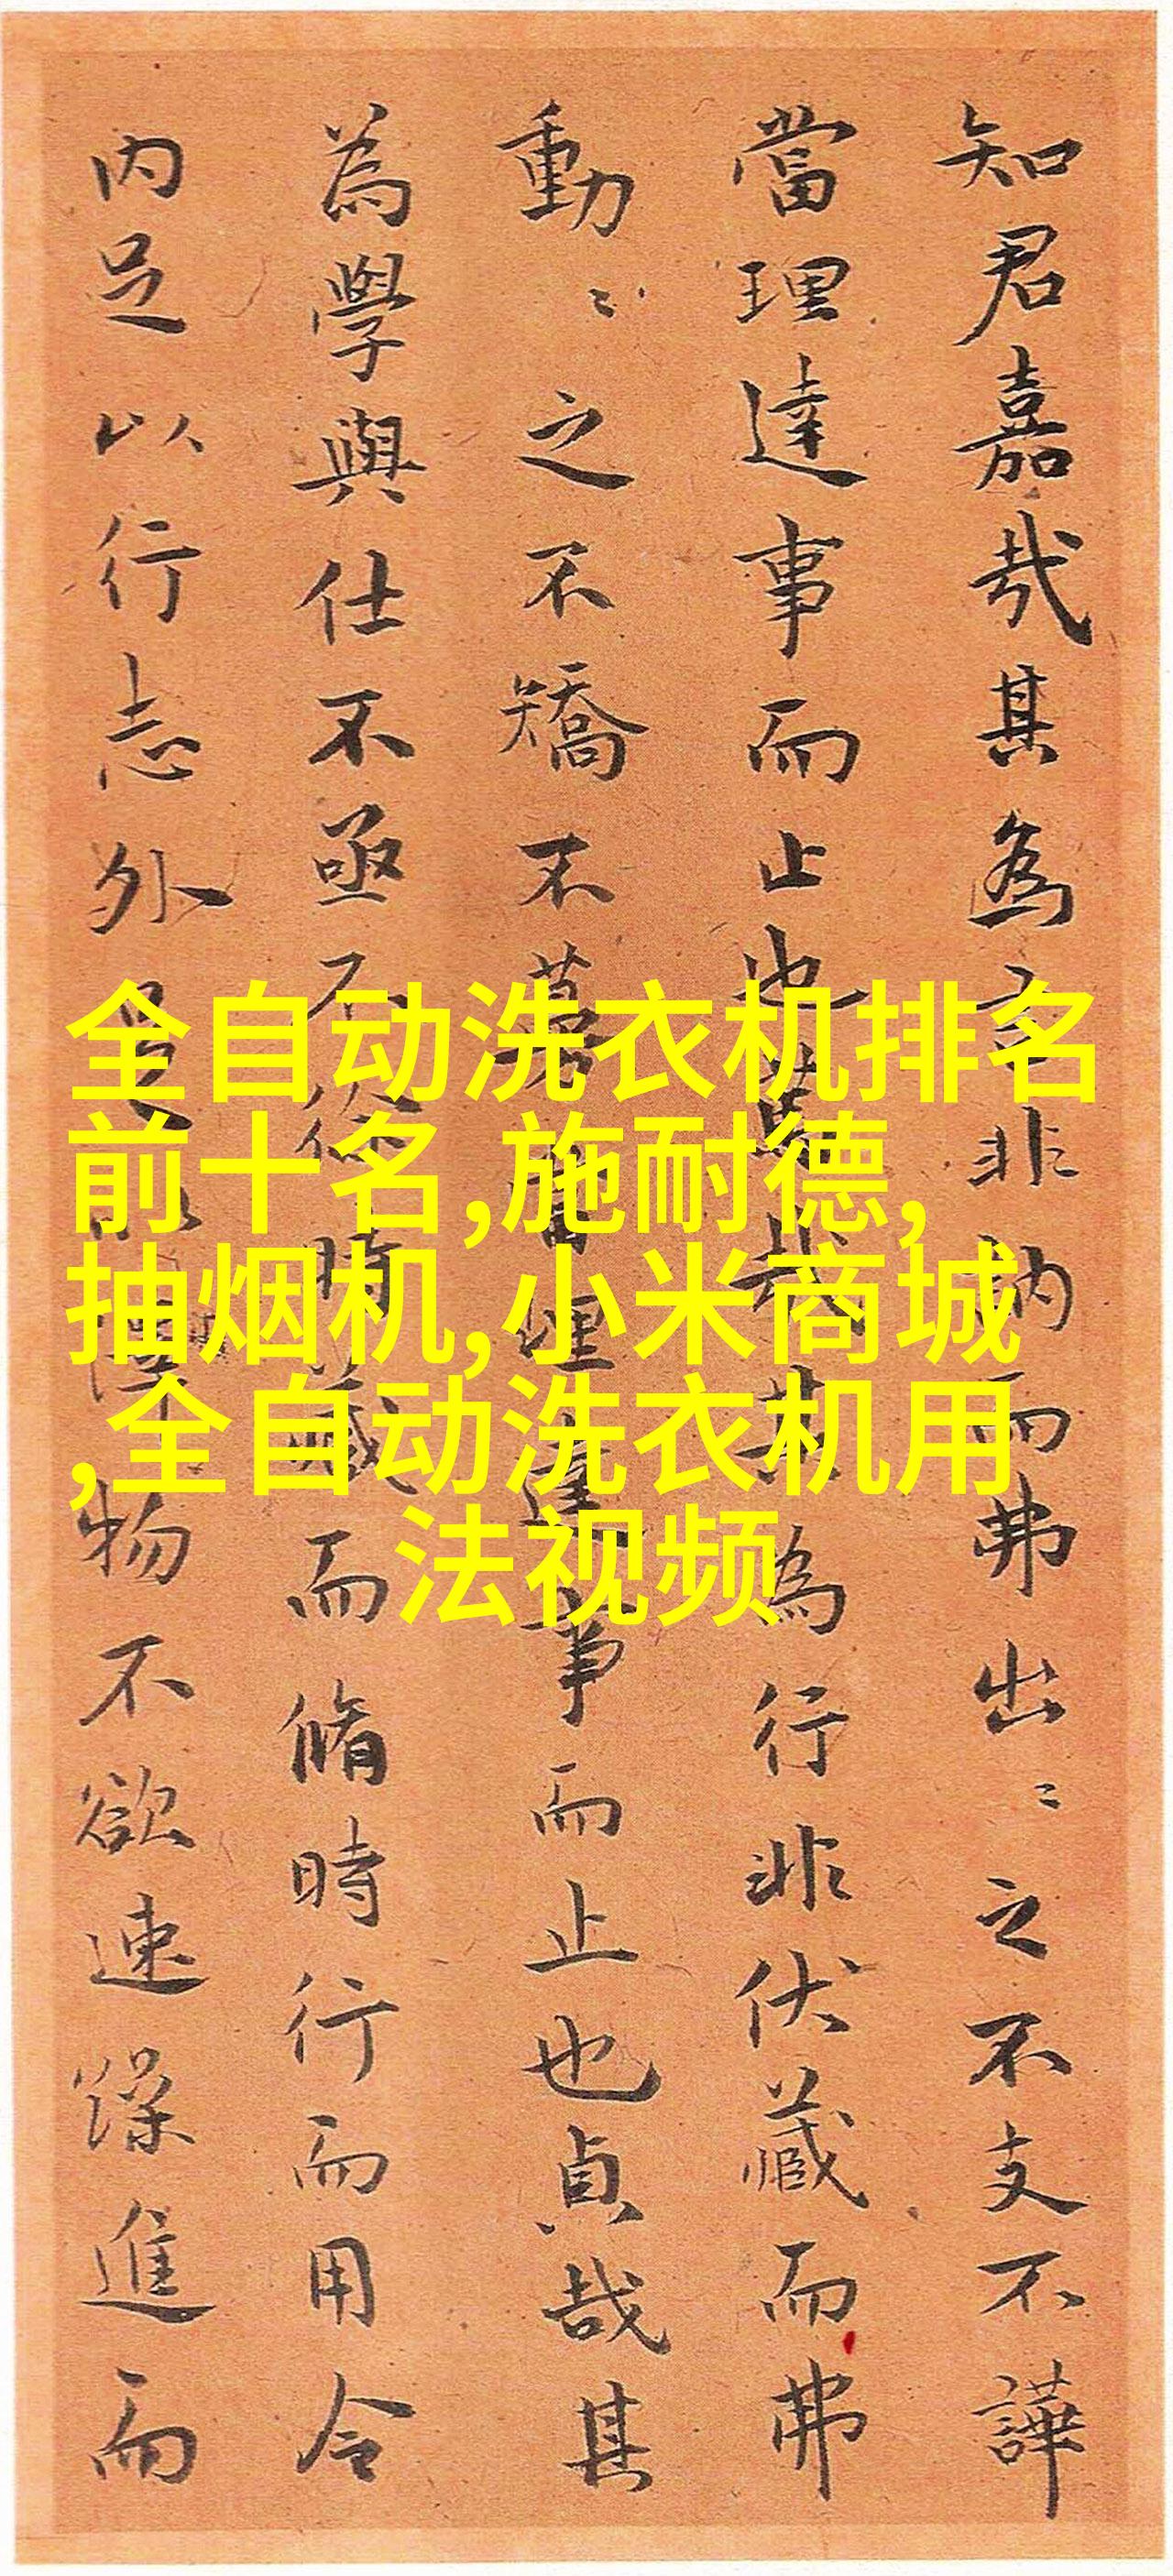 知君嘉哉其為言非訥而弗出〻之不支不譁
當理達事而止也哉其為行非伏藏而弗
動〻之不矯不當理達事而止也貞哉其
為學與仕不亟不時藏而脩時行而用令
内足以行志外足以澤物不欲速躁進而
全自动洗衣机排名
前十名,施耐德,
抽烟机,小米商城
,全自动洗衣机用
法视频